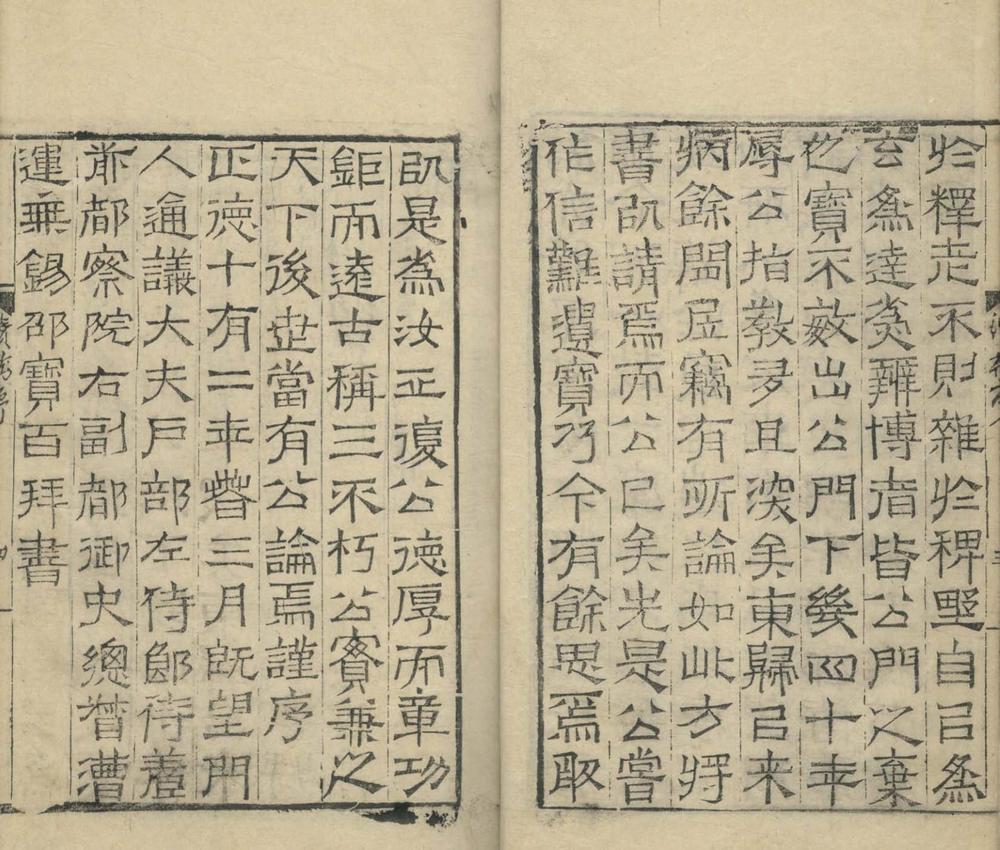 於釋老不則雜於稗野自㠯為
玄為達為辨博者皆公門之棄
也寶不敏出公門下幾四十年
辱公指教多且深矣東歸㠯来
病餘閒居竊有所論如此方將
書以請焉而公已矣先是公嘗
作信難遺寶乃今有餘思焉敢
以是為汝正復公德厚而章功
鉅而遠古稱三不朽公實兼之
天下後世當有公論焉謹序
正德十有二年春三月既望門
人通議大夫戶部左侍郎侍養
前都察院右副都御史總督漕
運無錫邵寶百拜書